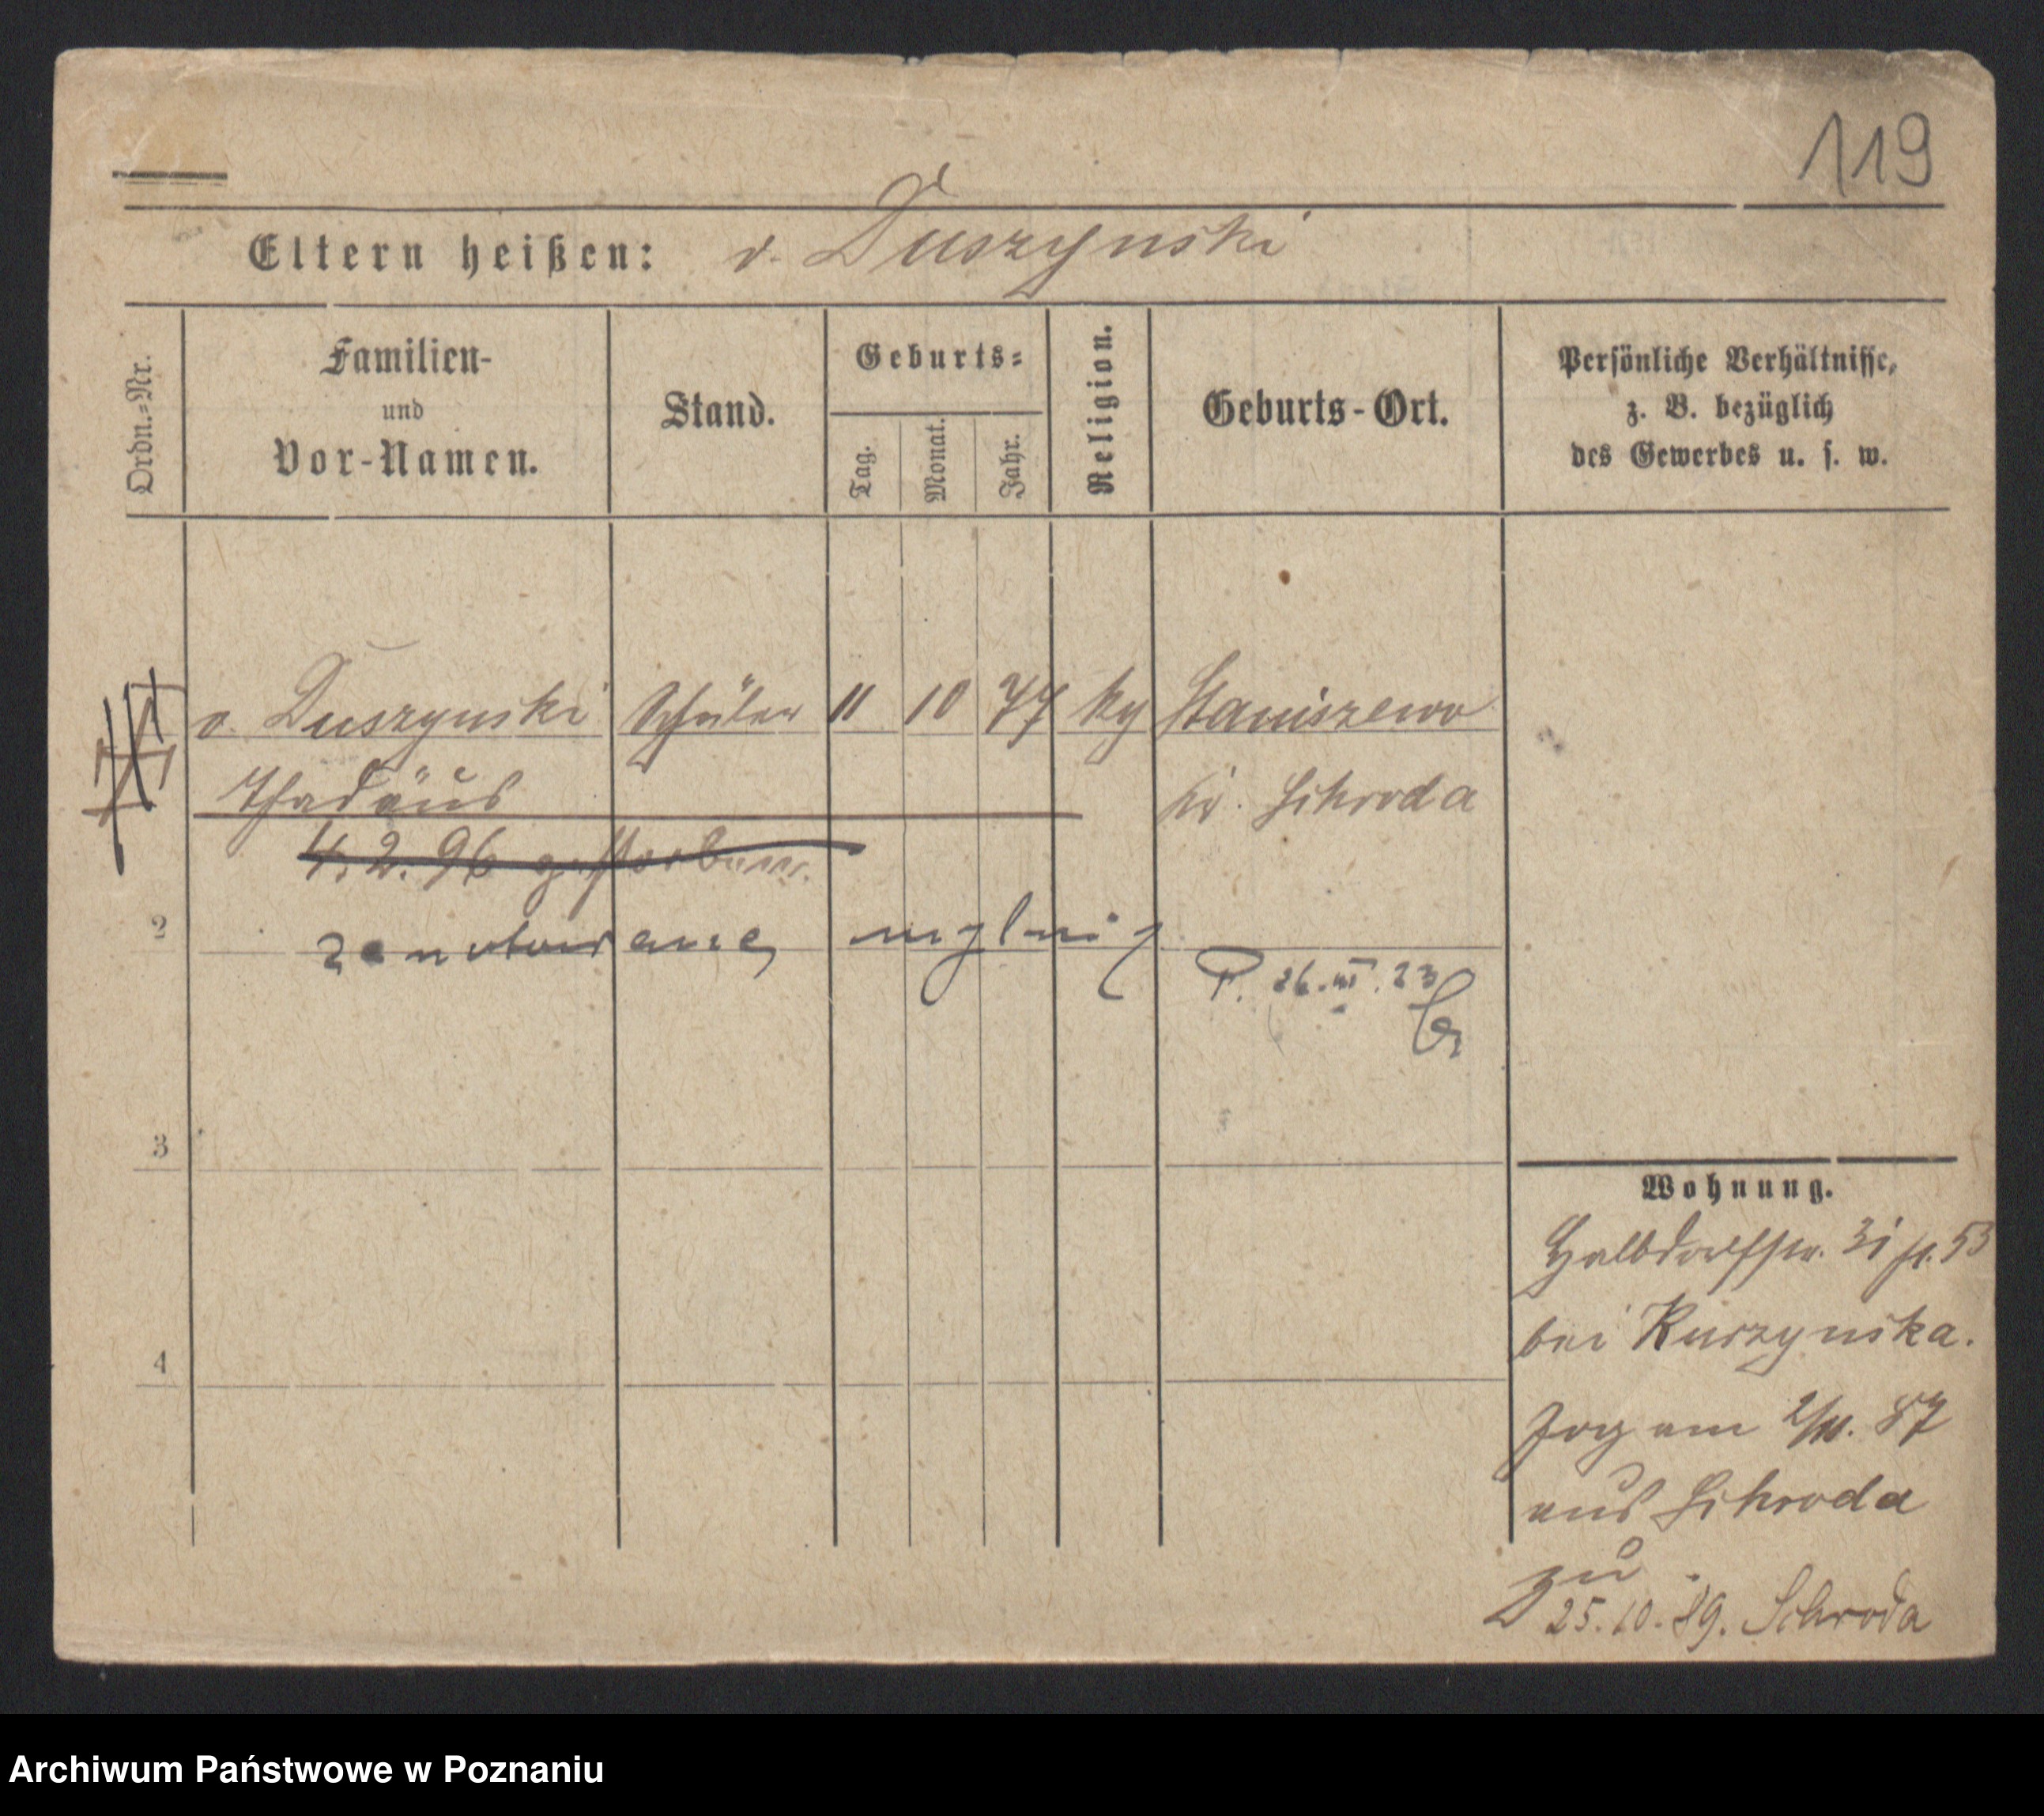 119
Eltern heißen: v. Duszynski
Ordn.=Nr.
Familien-
und
Vor-Namen.
Stand.
Geburts=
Tag.
Monat.
Jahr.
Religion.
Geburts-Ort.
Persönliche Verhältnisse,
z. B. bezüglich
des Gewerbes u. s. w.
v. Duszynski Schüler 11 10 77 Staniszewo
Thadäus Kr. Schroda
4. 2. 96 gestorben.
2
zanotowane mylnie
P. 26.III.23
3
4
Wohnung.
Halbdorfstr. 31 53
bei Ruszynska.
Zog am 2/11. 87
aus Schroda
zu
25.10.89. Schroda
Archiwum Państwowe w Poznaniu